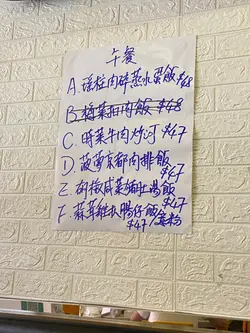 午餐
A. 瑤柱肉碎蒸水蛋飯 $48
B. 梅菜扣肉飯 $48
C. 時菜牛肉炒河 $47
D. 菠蘿京都肉排飯 $47
E. 胡椒咸菜豬肚湯飯 $47
F. 蒜茸雞扒腸仔飯/意粉 $47